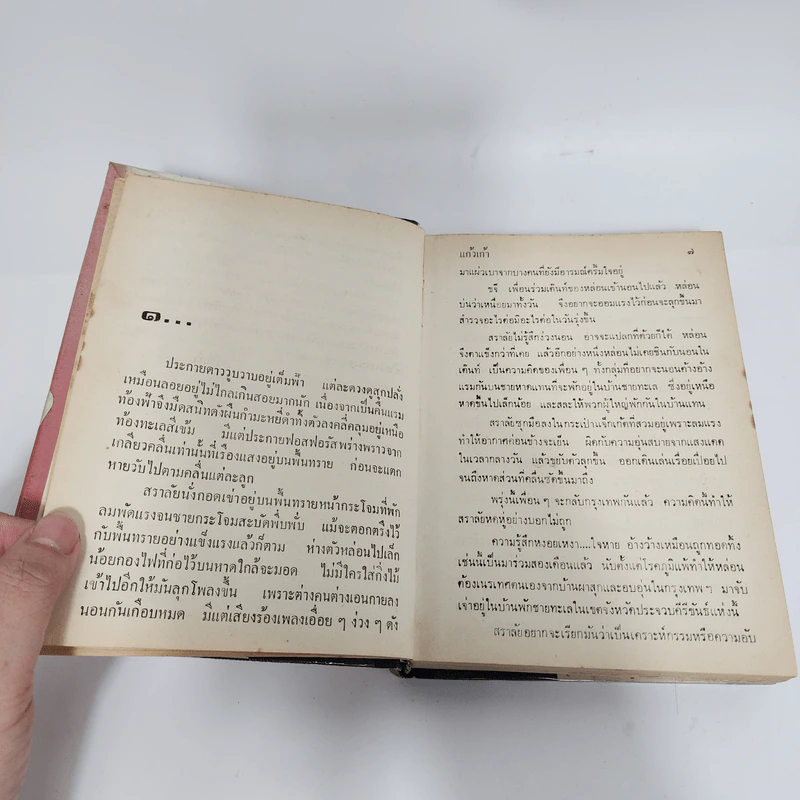 ๑...
ประกายดาววูบวาบอยู่เต็มฟ้า แต่ละดวงดูสุกปลั่ง
เหมือนลอยอยู่ไม่ไกลเกินสอยมากนัก เนื่องจากเป็นคืนแรม
ท้องฟ้าจึงมืดสนิทดั่งผืนกำมะหยี่ดำทั้งตัวลงคลี่คลุมอยู่เหนือ
ท้องทะเลสีเข้ม มีแต่ประกายฟอสฟอรัสพร่างพราวจาก
เกลียวคลื่นเท่านั้นที่เรืองแสงอยู่บนพื้นทราย ก่อนจะแตก
หายวับไปตามคลื่นแต่ละลูก
สราลัยนั่งกอดเข่าอยู่บนพื้นทรายหน้ากระโจมที่พัก
ลมพัดแรงจนชายกระโจมสะบัดพึ่บพั่บ แม้จะตอกตรึงไว้
กับพื้นทรายอย่างแข็งแรงแล้วก็ตาม ห่างตัวหล่อนไปเล็ก
น้อยกองไฟที่ก่อไว้บนหาดใกล้จะมอด ไม่มีใครใส่กิ่งไม้
เข้าไปอีกให้มันลุกโพลงขึ้น เพราะต่างคนต่างเอนกายลง
นอนกันเกือบหมด มีแต่เสียงร้องเพลงเอื่อย ๆ ง่วง ๆ ดัง
แก้วเก้า ๗
มาแผ่วเบาจากบางคนที่ยังมีอารมณ์ครึ้มใจอยู่
ขจี เพื่อนร่วมเต๊นท์ของหล่อนเข้านอนไปแล้ว หล่อน
บ่นว่าเหนื่อยมาทั้งวัน จึงอยากจะออมแรงไว้ก่อนจะลุกขึ้นมา
สำรวจอะไรต่อมิอะไรต่อในวันรุ่งขึ้น
สราลัยไม่รู้สึกง่วงนอน อาจจะแปลกที่ด้วยก็ได้ หล่อน
จึงตาแข็งกว่าที่เคย แล้วอีกอย่างหนึ่งหล่อนไม่เคยชินกับนอนใน
เต๊นท์ เป็นความคิดของเพื่อน ๆ ทั้งกลุ่มที่อยากจะนอนค้างอ้าง
แรมกันบนชายหาดแทนที่จะพักอยู่ในบ้านชายทะเล ซึ่งอยู่เหนือ
หาดขึ้นไปเล็กน้อย และสละให้พวกผู้ใหญ่พักกันในบ้านแทน
สราลัยซุกมือลงในกระเป๋าแจ็กเก็ตที่สวมอยู่เพราะลมแรง
ทำให้อากาศค่อนข้างจะเย็น ผิดกับความอุ่นสบายจากแสงแดด
ในเวลากลางวัน แล้วขยับตัวลุกขึ้น ออกเดินเล่นเรื่อยเปื่อยไป
จนถึงหาดส่วนที่คลื่นซัดขึ้นมาถึง
พรุ่งนี้เพื่อน ๆ จะกลับกรุงเทพกันแล้ว ความคิดนี้ทำให้
สราลัยหดหู่อย่างบอกไม่ถูก
ความรู้สึกหงอยเหงา....ใจหาย อ้างว้างเหมือนถูกทอดทิ้ง
เช่นนี้เป็นมาร่วมสองเดือนแล้ว นับตั้งแต่โรคภูมิแพ้ทำให้หล่อน
ต้องเนรเทศตนเองจากบ้านผาสุกและอบอุ่นในกรุงเทพ ฯ มาจับ
เจ่าอยู่ในบ้านพักชายทะเลในเขตจังหวัดประจวบคีรีขันธ์แห่งนี้
สราลัยอยากจะเรียกมันว่าเป็นเคราะห์กรรมหรือความอับ